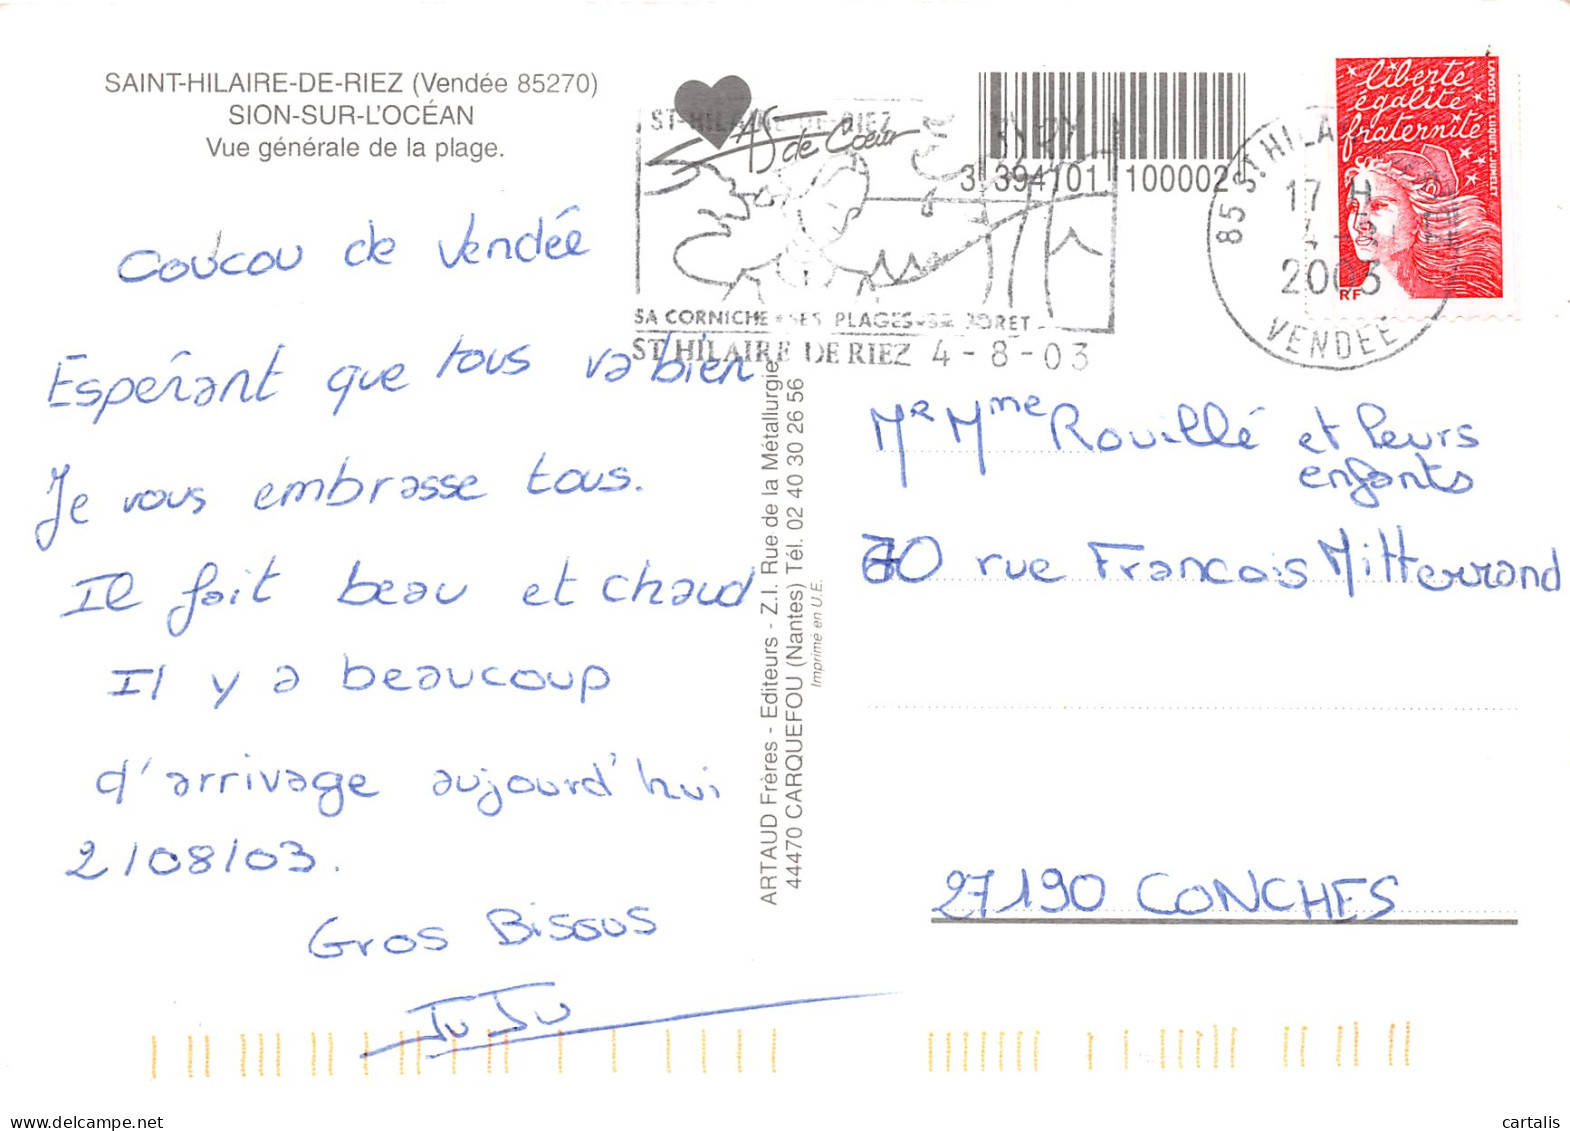 SAINT-HILAIRE-DE-RIEZ (Vendée 85270)
SION-SUR-L'OCÉAN
Vue générale de la plage.
Coucou de Vendée
Espérant que tous va bien
Je vous embrasse tous.
Il fait beau et chaud
Il y a beaucoup
d'arrivage aujourd'hui
2/08/03.
Gros Bisous
JuJu
ST-HILAIRE-DE-RIEZ
AS de Coeur
3 394101 100002
SA CORNICHE SES PLAGES SA FORET
ST HILAIRE DE RIEZ 4-8-03
85 ST HILAIRE
17 H
4-8
2003
VENDEE
liberté
égalité
fraternité
LAPOSTE LUQUET-JUMELET
RF
ARTAUD Frères - Editeurs - Z.I. Rue de la Métallurgie
44470 CARQUEFOU (Nantes) Tél. 02 40 30 26 56
Imprimé en U.E.
Mr Mme Rouillé et leurs
enfants
rue Francois Mitterrand
27190 CONCHES
cartalis